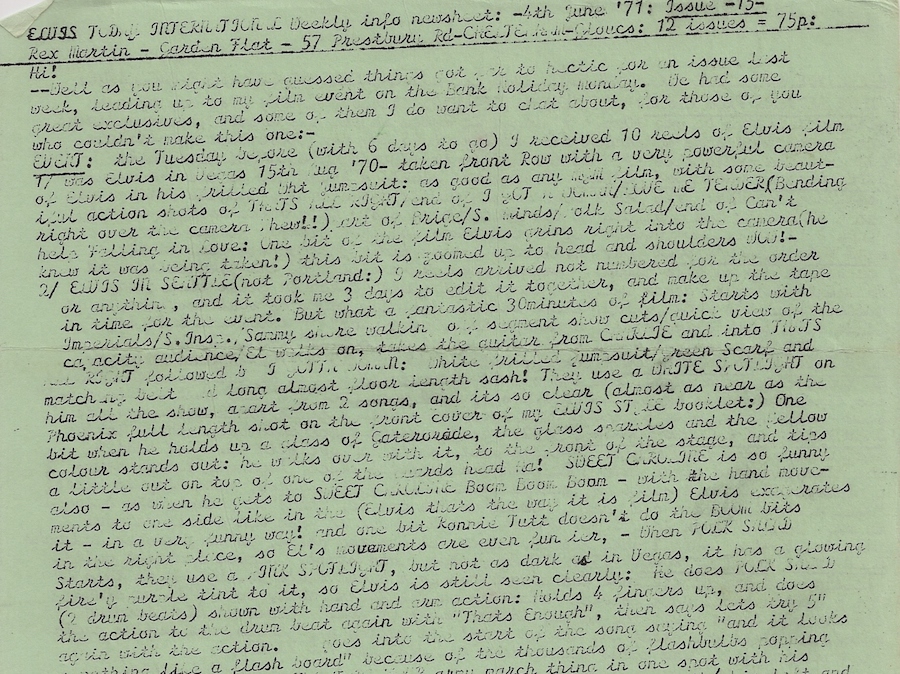 ELVIS TODAY INTERNATIONAL Weekly info newsheet: -4th June '71: Issue -15-
Rex Martin - Garden Flat - 57 Prestbury Rd-CHELTENHAM-Gloucs: 12 issues = 75p:
Hi!
--Well as you might have guessed things got far to hectic for an issue last
week, leading up to my film event on the Bank Holiday Monday. We had some
great exclusives, and some of them I do want to chat about, for those of you
who couldn't make this one:-
EVENT: the Tuesday before (with 6 days to go) I received 10 reels of Elvis film
1/ was Elvis in Vegas 15th Aug '70- taken front Row with a very powerful camera
of Elvis in his frilled Wht jumpsuit: as good as any MGM film, with some beaut-
iful action shots of THATS ALL RIGHT/end of I GOT A WOMAN/LOVE ME TENDER(Bending
right over the camera Phew!!) part of Bridge/S. Minds/Polk Salad/end of Can't
help Falling in Love: One bit of the film Elvis grins right into the camera(he
knew it was being taken!) this bit is zoomed up to head and shoulders WOW!-
2/ ELVIS IN SEATTLE(not Portland:) 9 reels arrived not numbered for the order
or anything, and it took me 3 days to edit it together, and make up the tape
in time for the event. But what a fantastic 30minutes of film: Starts with
Imperials/S.Insp./Sammy shore walking off segment show cuts/quick view of the
capacity audience/El walks on, takes the guitar from CHARLIE and into THATS
ALL RIGHT followed by I GOTTA WOMAN: White frilled jumpsuit/green Scarf and
matching belt and long almost floor length sash! They use a WHITE SPOTLIGHT on
him all the show, apart from 2 songs, and its so clear (almost as near as the
Phoenix full length shot on the front cover of my ELVIS STYLE booklet:) One
bit when he holds up a glass of Gaterorade, the glass sparkles and the yellow
colour stands out: he walks over with it, to the front of the stage, and tips
a little out on top of one of the guards head Ha! SWEET CAROLINE is so funny
also - as when he gets to SWEET CAROLINE Boom Boom Boom - with the hand move-
ments to one side like in the (Elvis thats the way it is film) Elvis exagerates
it - in a very funny way! and one bit Ronnie Tutt doesn't do the BOOM bits
in the right place, so El's movements are even funnier, - When POLK SALAD
Starts, they use a PINK SPOTLIGHT, but not as dark as in Vegas, it has a glowing
fire'y purple tint to it, so Elvis is still seen clearly: He does POLK SALAD
(2 drum beats) shown with hand and arm action: Holds 4 fingers up, and does
the action to the drum beat again with "Thats Enough", then says lets try 5"
again with the action. goes into the start of the song saying "and it looks
like a flash board" because of the thousands of flashbulbs popping
army march thing in one spot with his